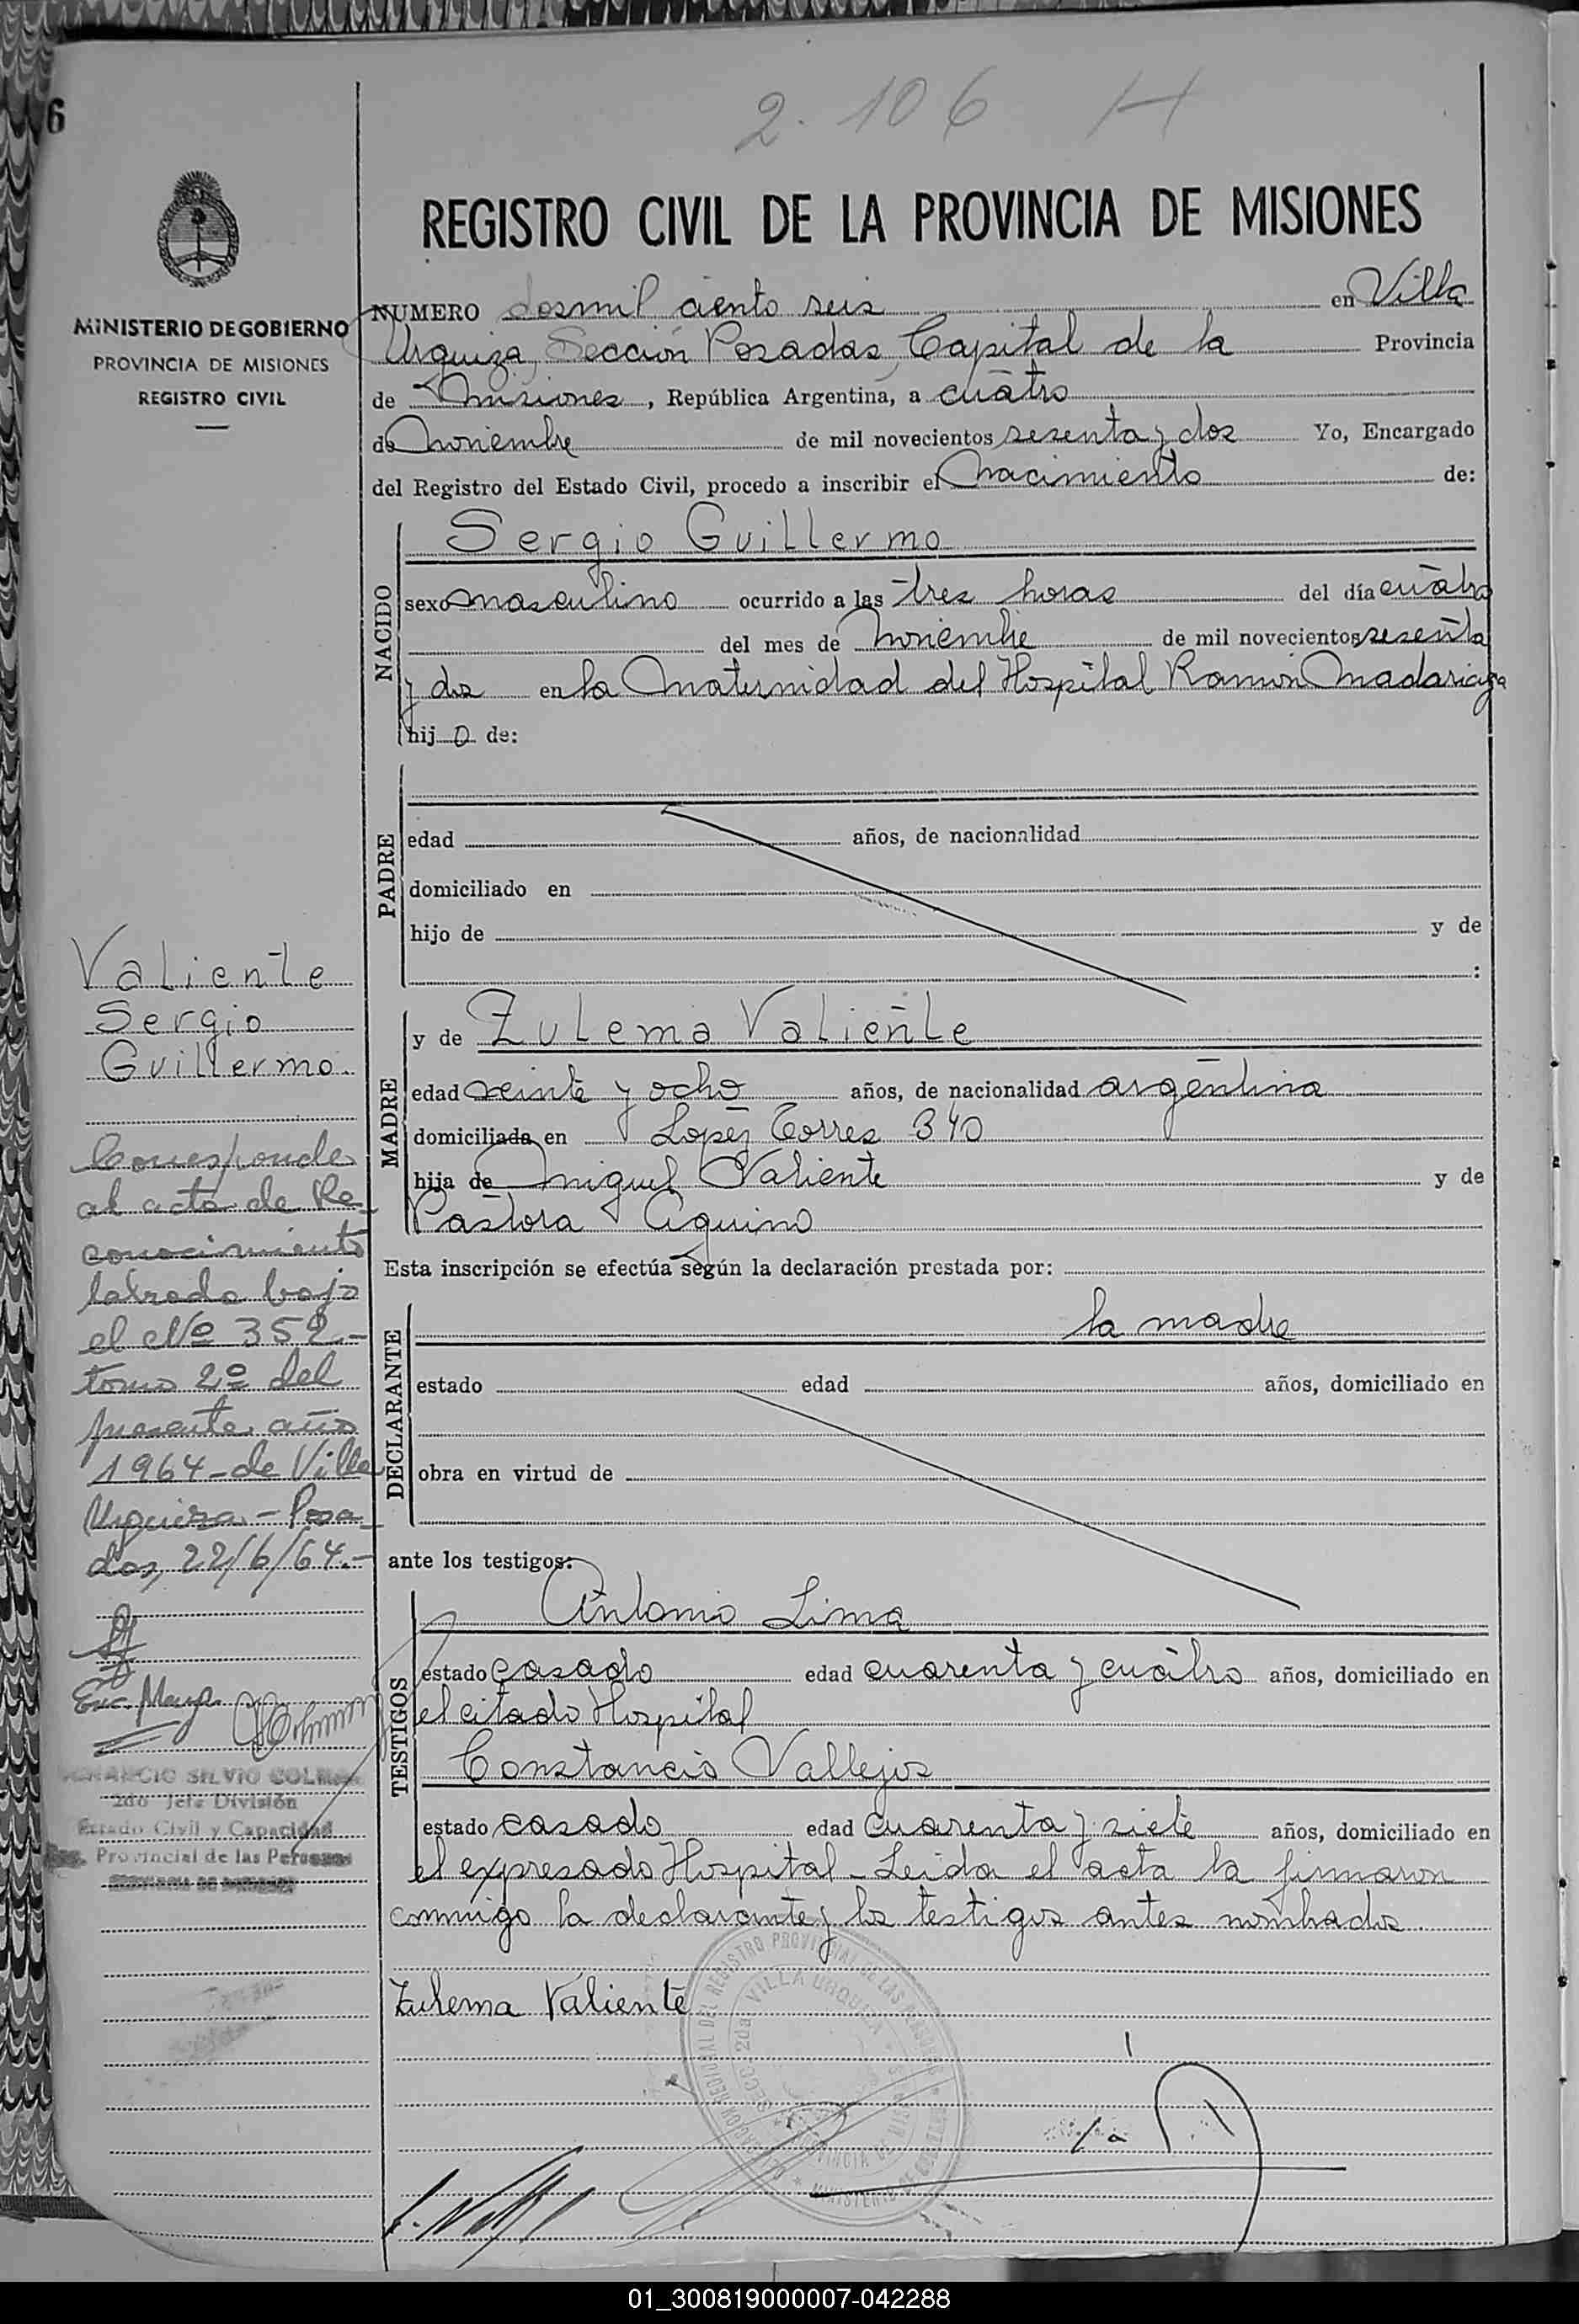 6
2.106 H
MINISTERIO DE GOBIERNO
PROVINCIA DE MISIONES
REGISTRO CIVIL
REGISTRO CIVIL DE LA PROVINCIA DE MISIONES
NUMERO dosmil ciento seis en Villa
Urquiza, Sección Posadas, Capital de la Provincia
de Misiones, República Argentina, a cuatro
de noviembre de mil novecientos sesenta y dos Yo, Encargado
del Registro del Estado Civil, procedo a inscribir el nacimiento de:
NACIDO
Sergio Guillermo
sexo masculino ocurrido a las tres horas del día cuatro
del mes de noviembre de mil novecientos sesenta
y dos en la Maternidad del Hospital Ramón Madariaga
hijo de:
PADRE
edad años, de nacionalidad
domiciliado en
hijo de y de
:
MADRE
y de Zulema Valiente
edad veinte y ocho años, de nacionalidad argentina
domiciliada en López Torres 340
hija de Miguel Valiente y de
Pastora Aquino
Esta inscripción se efectúa según la declaración prestada por:
DECLARANTE
la madre
estado edad años, domiciliado en
obra en virtud de
ante los testigos:
TESTIGOS
Antonio Lima
estado casado edad cuarenta y cuatro años, domiciliado en
el citado Hospital
Constancio Vallejos
estado casado edad cuarenta y siete años, domiciliado en
el expresado Hospital - Leida el acta la firmaron
conmigo la declarante y los testigos antes nombrados.
Zulema Valiente
Valiente
Sergio
Guillermo.
Corresponde
al acta de Re-
conocimiento
labrada bajo
el Nº 352.-
tomo 2º del
presente año
1964-de Villa
Urquiza.- Posa-
das, 22/6/64.-
Enc. Mesa
SILVIO COLMAN
2do Jefe División
Estado Civil y Capacidad
Reg. Provincial de las Personas
DELEGACION REGIONAL DEL REGISTRO PROVINCIAL DE LAS PERSONAS
SECC. 2da. VILLA URQUIZA
PROVINCIA DE MISIONES
MINISTERIO DE GOBIERNO
01_300819000007-042288